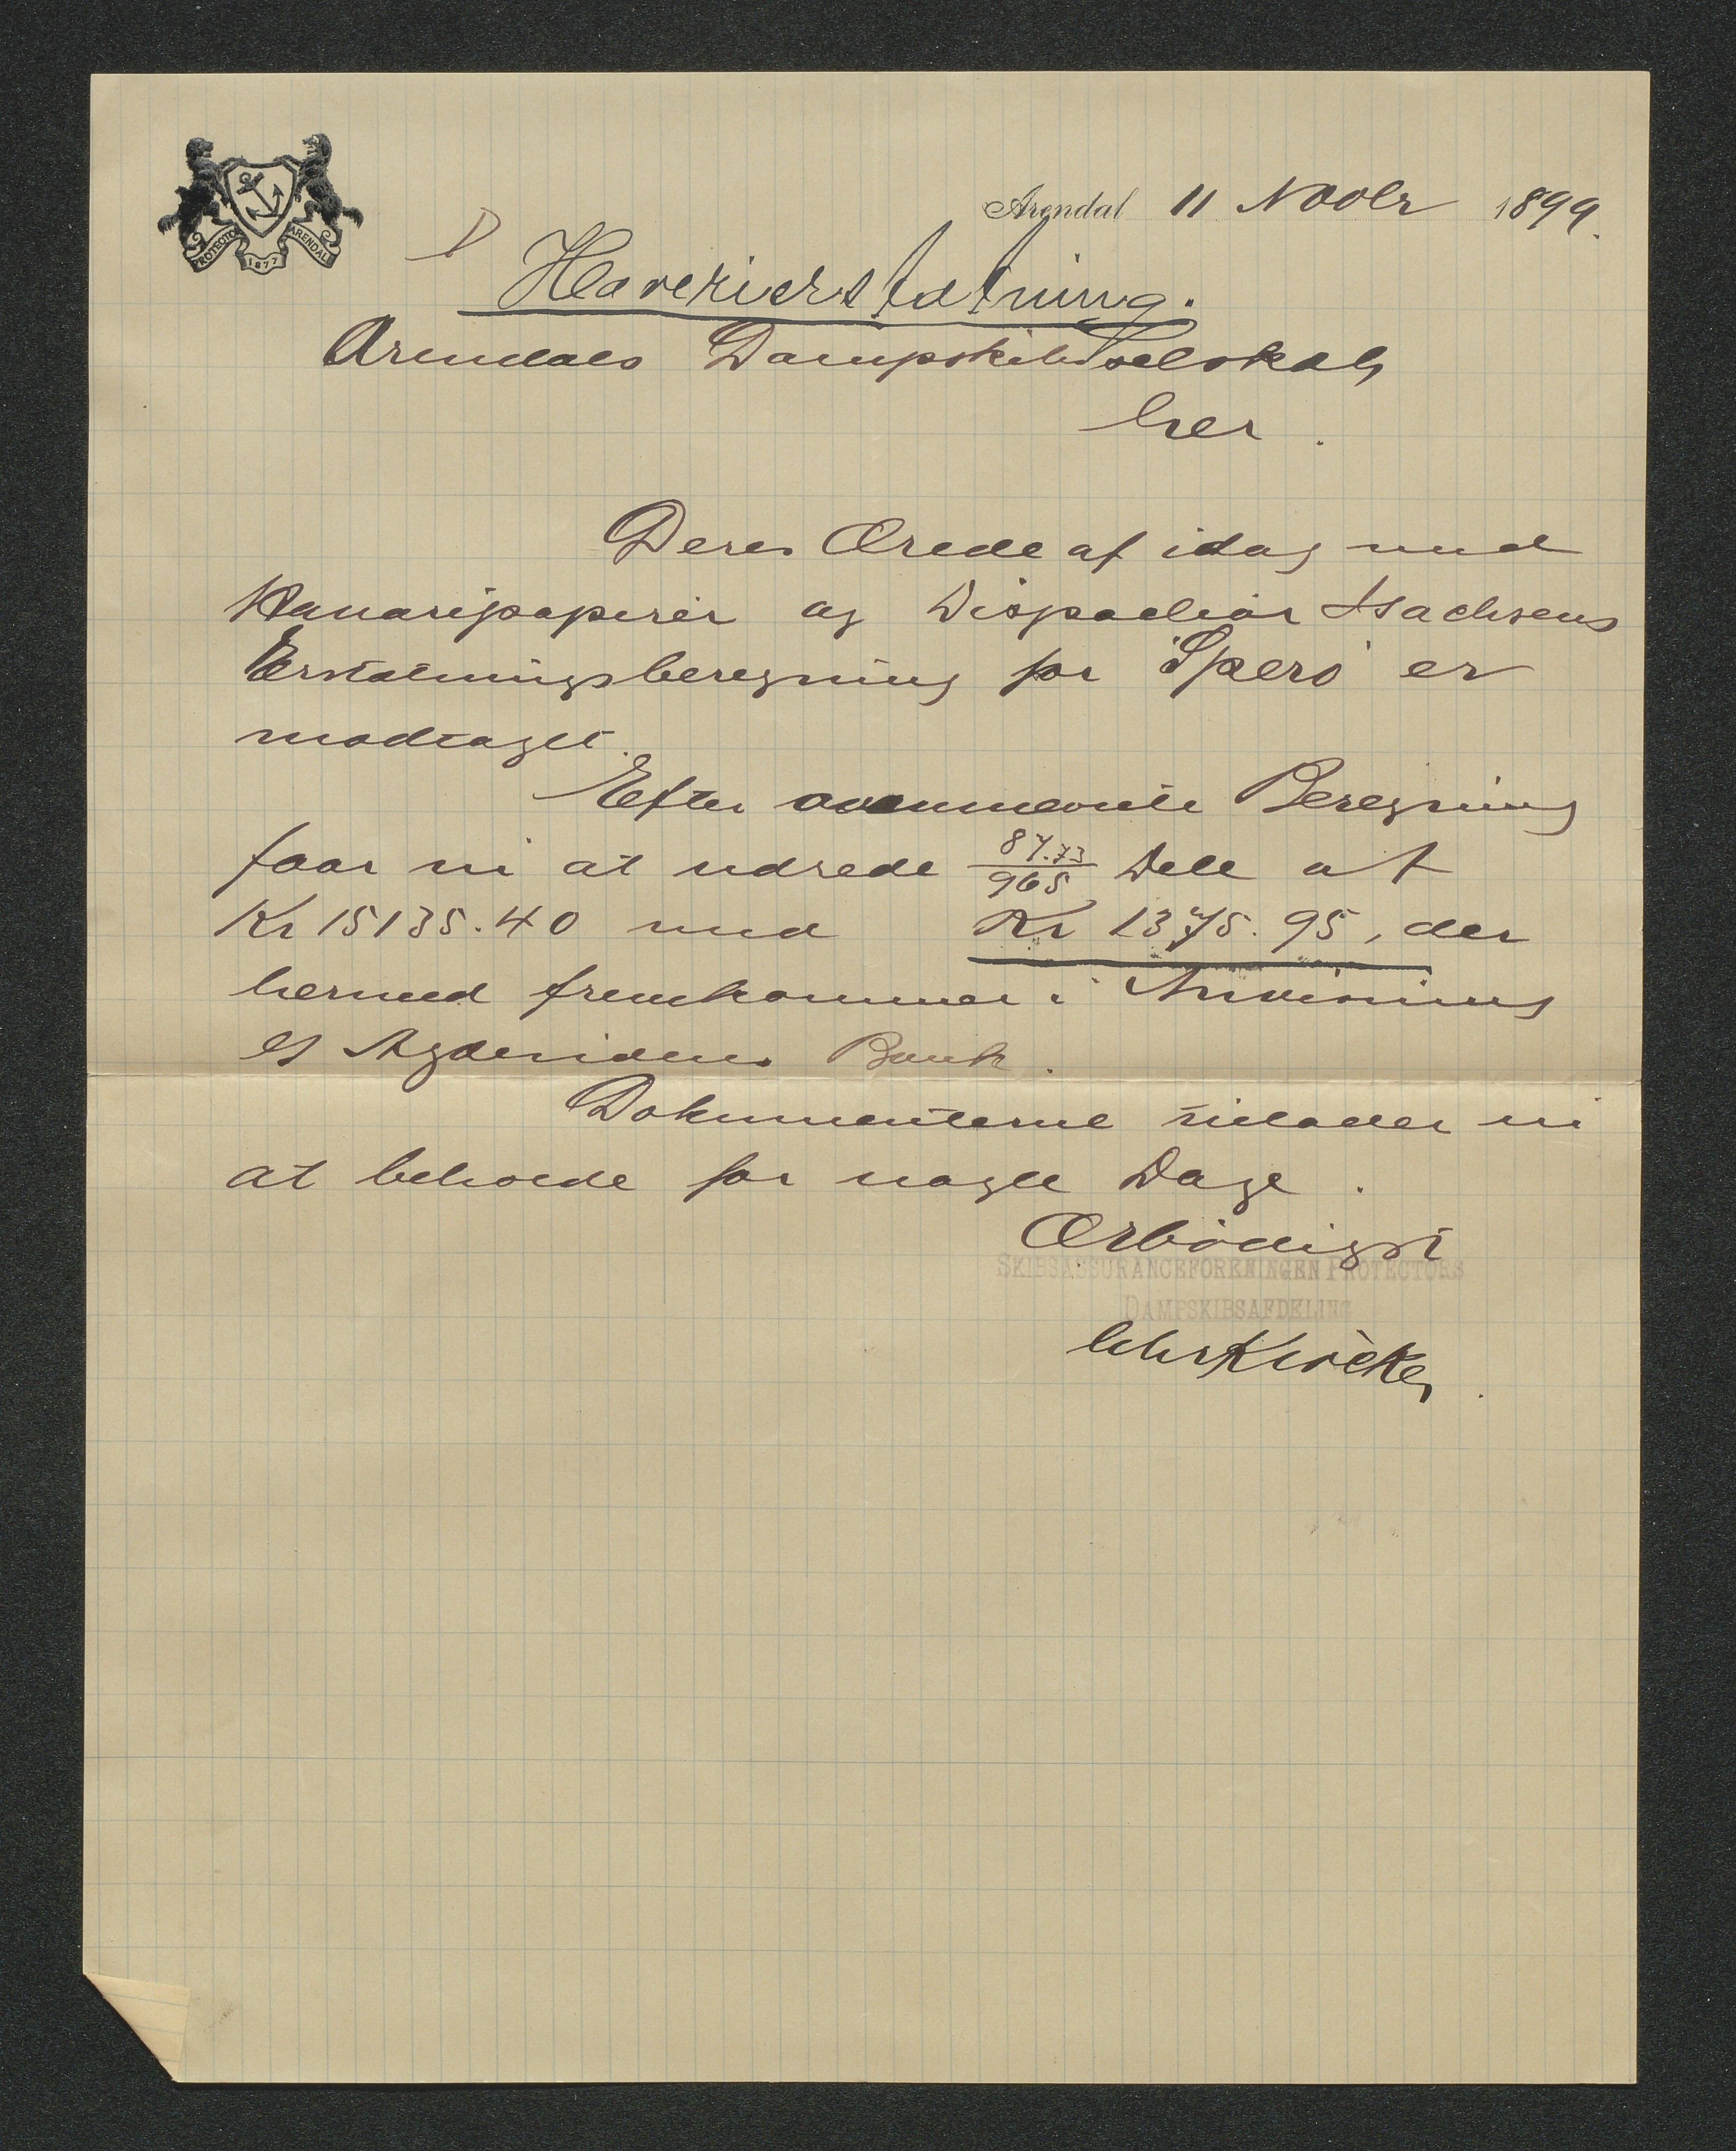 PROTECTOR 1877 ARENDAL
Arendal 11 Novbr 1899.
Haverierstatning.
Arendals Dampskibsselskab,
her.
Deres Ærede af idag med
Havaripapirer og Dispachør Isachsens
Erstatningsberegning for "Spero" er
modtaget.
Efter ovennævnte Beregning
faar vi at udrede 87.73/965 Dele af
Kr 15135.40 med Kr 1375.95, der
hermed fremkommer i Anvisning
Agdesidens Bank.
Dokumenterne tillader vi
at beholde for nogle Dage.
Ærbødigst
SKIBSASSURANCEFORENINGEN PROTECTORS
DAMPSKIBSAFDELING